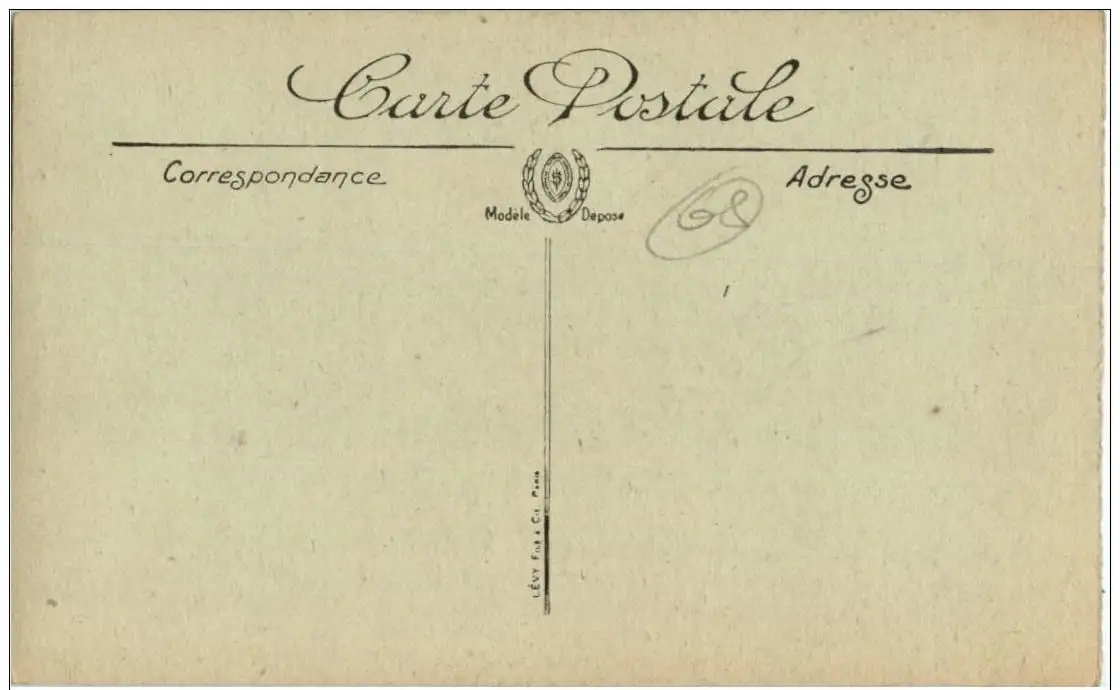 Carte Postale
Correspondance
Adresse
Modèle Déposé
68
LÉVY FILS & CIE, PARIS